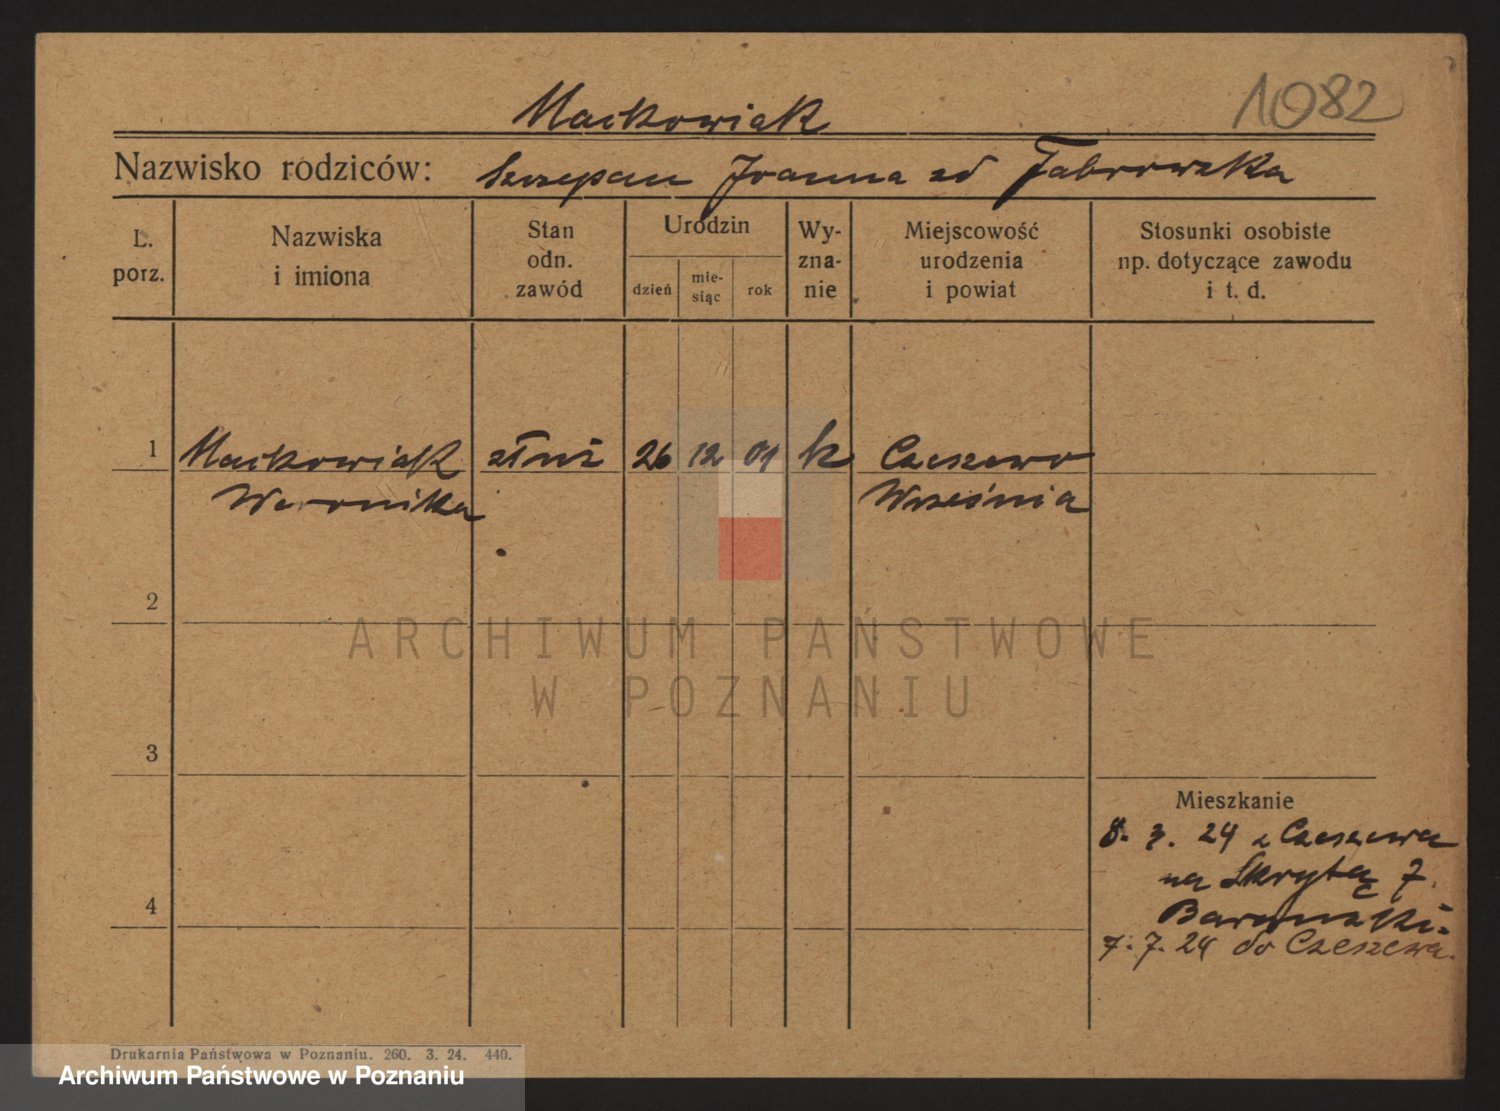 1082
Maćkowiak
Nazwisko rodziców: Szczepan Joanna zd Jabrowska
L. porz.
Nazwiska i imiona
Stan odn. zawód
Urodzin
dzień
mie-
siąc
rok
Wy-
zna-
nie
Miejscowość urodzenia i powiat
Stosunki osobiste np. dotyczące zawodu i t. d.
1 Maćkowiak służ 26 12 01 k Czeszewo
Weronika Września
2
ARCHIWUM PAŃSTWOWE
W POZNANIU
3
Mieszkanie
8. 3. 24 z Czeszewa
na Skrytą 7.
4
Barański.
7. 7. 24 do Czeszewa.
Drukarnia Państwowa w Poznaniu. 260. 3. 24. 440.
Archiwum Państwowe w Poznaniu